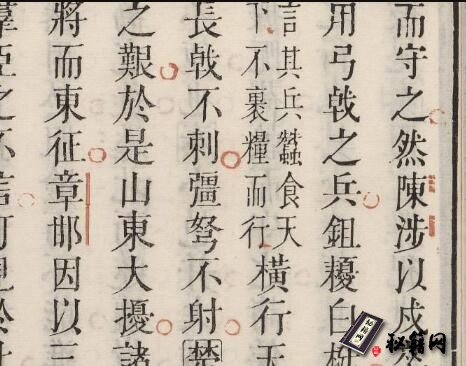 而守之然陳涉以戍
用弓戟之兵鉏櫌白梃
言其兵蠶食天
下不裹糧而行
橫行天
長戟不刺彊弩不射楚
之艱於是山東大擾諸
將而東征章邯因以三
羣臣之不信可見於
秘籍网